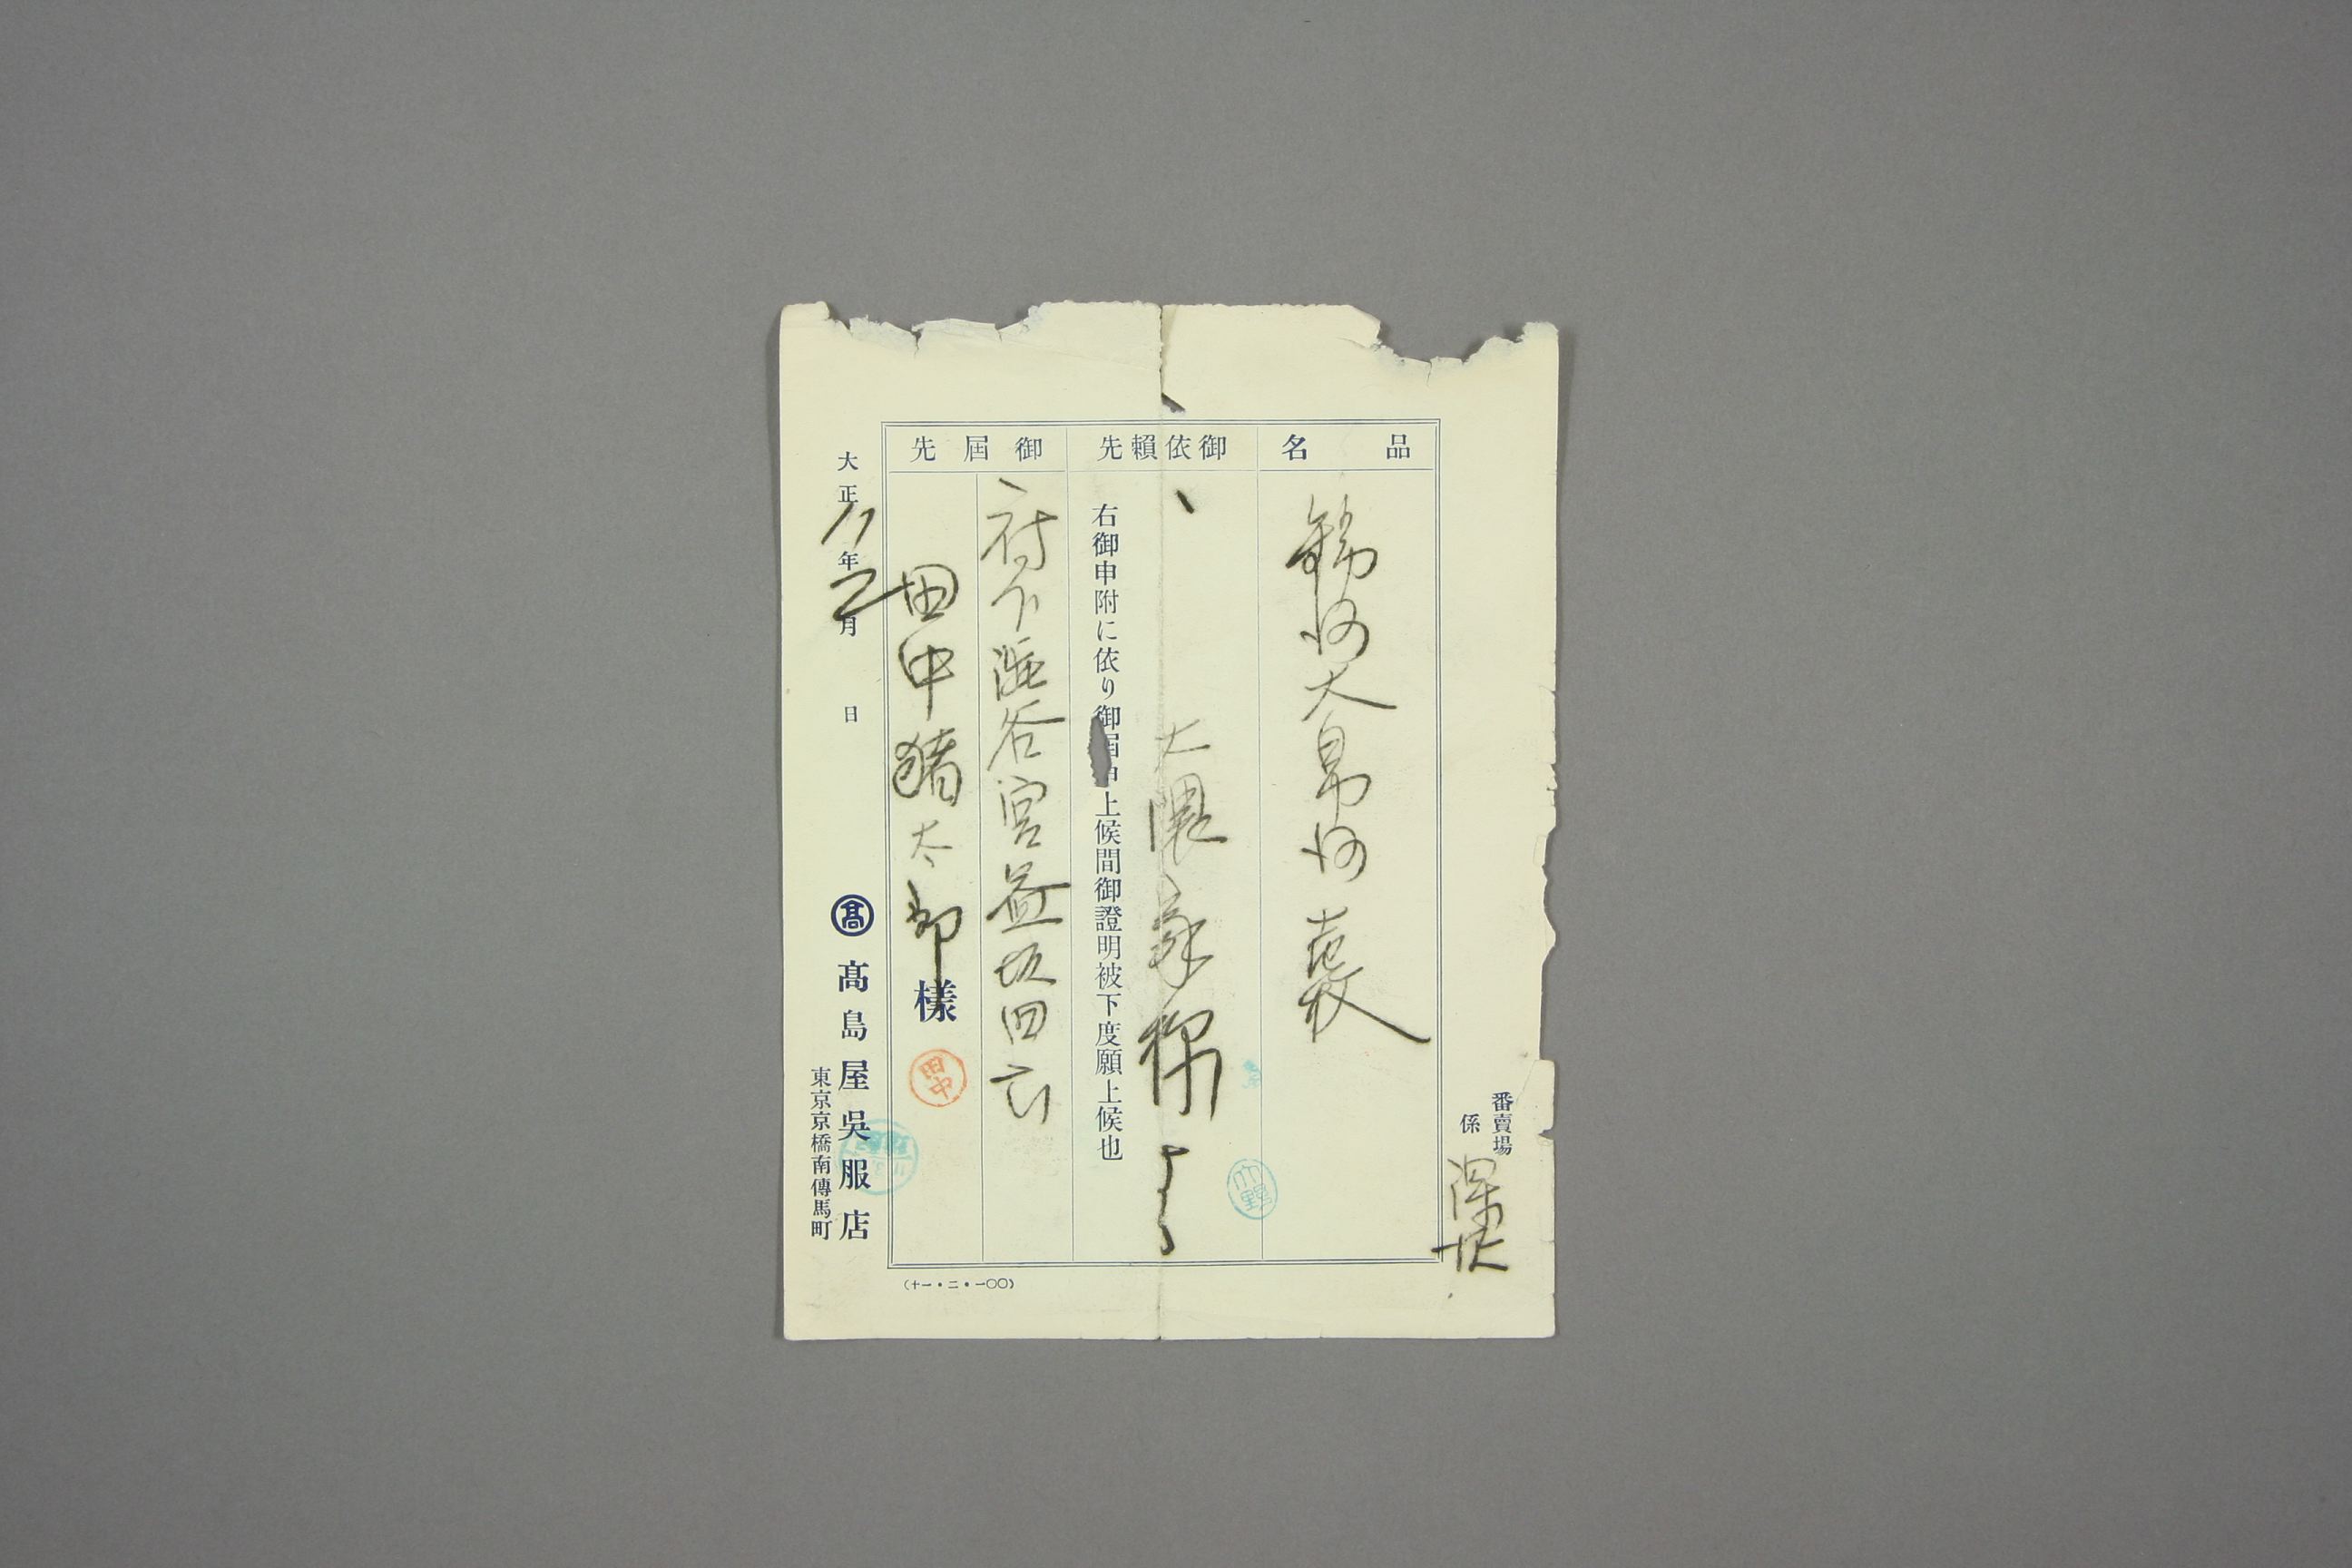 番賣場
係
深沢
品名
錦地大帛地袋
御依頼先
大隈家様より
右御申附に依り御届申上候間御證明被下度願上候也
御届先
府下渋谷宮益坂田六
田中猪太郎様
田中
大正11年2月 日
髙
髙島屋吳服店
東京京橋南傳馬町
(十一・二・一〇〇)